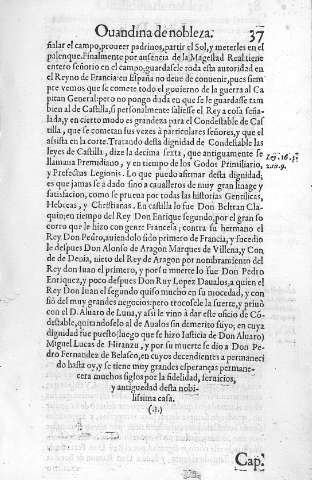 Ouandina de nobleza. 37
ñalar el campo, proueer padrinos, partir el Sol, y meterles en el
palenque. Finalmente por ausencia de la Magestad Real tiene
entero señorio en el campo, guardasele toda esta autoridad en
el Reyno de Francia: en España no deue de conuenir, pues siem
pre vemos que se comete todo el gouierno de la guerra al Ca
pitan General: pero no pongo dada en que se le guardasse tam
bien al de Castilla, si personalmente saliesse el Rey a cosa seña-
lada, y en cierto modo es grandeza para el Condestable de Cas
tilla, que se cometan sus vezes à particulares señores, y que el
assista en la corte. Tratando desta dignidad de Condestable las
leyes de Castilla, dize la decima sexta, que antiguamente se
llamaua Premostano, y en tiempo de los Godos Primiliario,
y Prefectus Legionis. Lo que puedo afirmar desta dignidad,
es que jamas se à dado sino a caualleros de muy gran linage y
satisfacion, como se prueua por todas las historias Gentilicas,
Hebreas, y Christianas. En castilla lo fue Don Beltran Cla-
quin, en tiempo del Rey Don Enrique segundo, por el gran so
corro que le hizo con gente Francesa, contra su hermano el
Rey Don Pedro, auiendolo sido primero de Francia, y sucedio
le despues Don Alonso de Aragon Marques de Villena, y Con
de de Denia, nieto del Rey de Aragon por nombramiento del
Rey don Iuan el primero, y por su muerte lo fue Don Pedro
Enriquez, y poco despues Don Ruy Lopez Daualos, a quien el
Rey Don Iuan el segundo quiso mucho en su mocedad, y con
fiò del muy grandes negocios: pero trocose le la suerte, y priuò
con el D. Aluaro de Luna, y assi le vino à dar este oficio de Cō
destable, quitandoselo al de Aualos sin demerito suyo, en cuya
dignidad fue puesto (luego que se hizo Iusticia de Don Aluaro)
Miguel Lucas de Hiranzu, y por su muerte se dio a Don Pe-
dro Fernandez de Belasco, en cuyos decendientes a permaneci
do hasta oy, y se tiene muy grandes esperanças permane-
cera muchos siglos por la fidelidad, seruicios,
y antiguedad desta nobi-
lissima casa.
(.?.)
Cap.